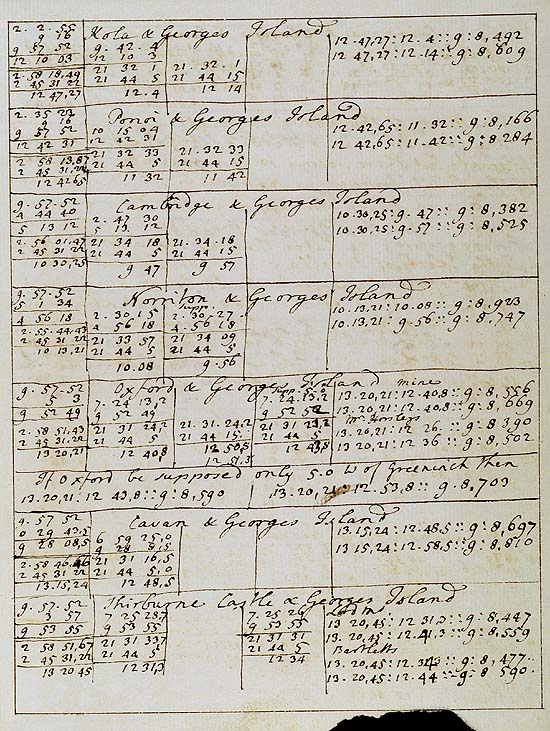 Kola & Georges Island
2. 2. 55
9 16
9 57 52
12 10 03
2. 58 18,49
2 45 31 22
12 47,27
9. 42. 4
12 10 3
21 32 1
21 44 5
12.4
21. 32. 1
21 44 15
12 14
12. 47,27: 12. 4:: 9: 8,492
12 47,27: 12.14:: 9: 8,609
Ponoi & Georges Island
2. 35 23
9 16
9 57 52
12 42 31
2 58 13,87
2 45 31,22
12 42,65
10 15 04
12 42 31
21 32 33
21 44 5
11 32
21. 32 33
21 44 15
11 42
12. 42,65: 11. 32:: 9: 8,166
12 42,65: 11. 42:: 9: 8 284
Cambridge & Georges Island
9. 57. 52
4 44 40
5 13 12
2. 56 01,47
2 45 31 22
10 30,25
2. 47 30
5 13. 12
21 34 18
21 44 5
9 47
21. 34. 18
21 44 15
9 57
10. 30,25: 9. 47:: 9: 8,382
10. 30,25: 9. 57:: 9: 8,525
Norriton & Georges Island
9. 57. 52
5 1 34
4 56 18
2. 55. 44,43
2 45 31 22
10 13,21
2. 30. 15
4 56 18
21 33 57
21 44 5
10.08
2. 30. 27
4. 56. 18
21 34 09
21 44 5
9.56
10. 13,21: 10.08:: 9: 8,923
10. 13,21: 9. 56:: 9: 8,747
Oxford & Georges Island
9. 57. 52
5 3
9 52 49
2. 58 51,43
2 45 31,22
13 20,21
7. 24 13,2
9 52 49
21 31 24,2
21 44 5
12 40,8
21. 31. 24,2
21 44 15
12 50,8
7. 24. 13,2
9 52 52
21 44 5
mine
13. 20,21: 12. 40,8:: 9: 8,556
8,669
Mr Hornsby
12 26:: 9: 8 390
13. 20,21: 12 36:: 9: 8,502
If Oxford be supposed only 5.0 W of Greenwich then
13. 20,21: 12 43,8:: 9: 8,590
13. 20,21: 12. 53,8:: 9: 8,703
Cavan & Georges Island
9. 57 52
0 29 43,5
9 28 08,5
2. 58 46,46
2 45 31,22
13. 15,24
6 59 25,0
9 28 8,5
21 31 16,5
21 44 5,0
12 48,5
13. 15,24: 12. 48,5:: 9: 8,697
13 15,24: 12. 58,5:: 9: 8,810
Thirburne Castle & Georges Island
9. 57. 52
3 57
9 53 55
2 58 51,67
2 45 31,22
13 20 45
9 53 55
21 31 33,7
21 44 5
12 31,3
9 53 55
21 31 31
21 44 5
12 34
13 20,45: 12 31,3:: 9: 8,447
13. 20,45: 12. 41,3:: 9: 8,559
Bartletts
13. 20,45: 12. 34:: 9: 8,477
13. 20,45: 12. 44:: 9: 8 590